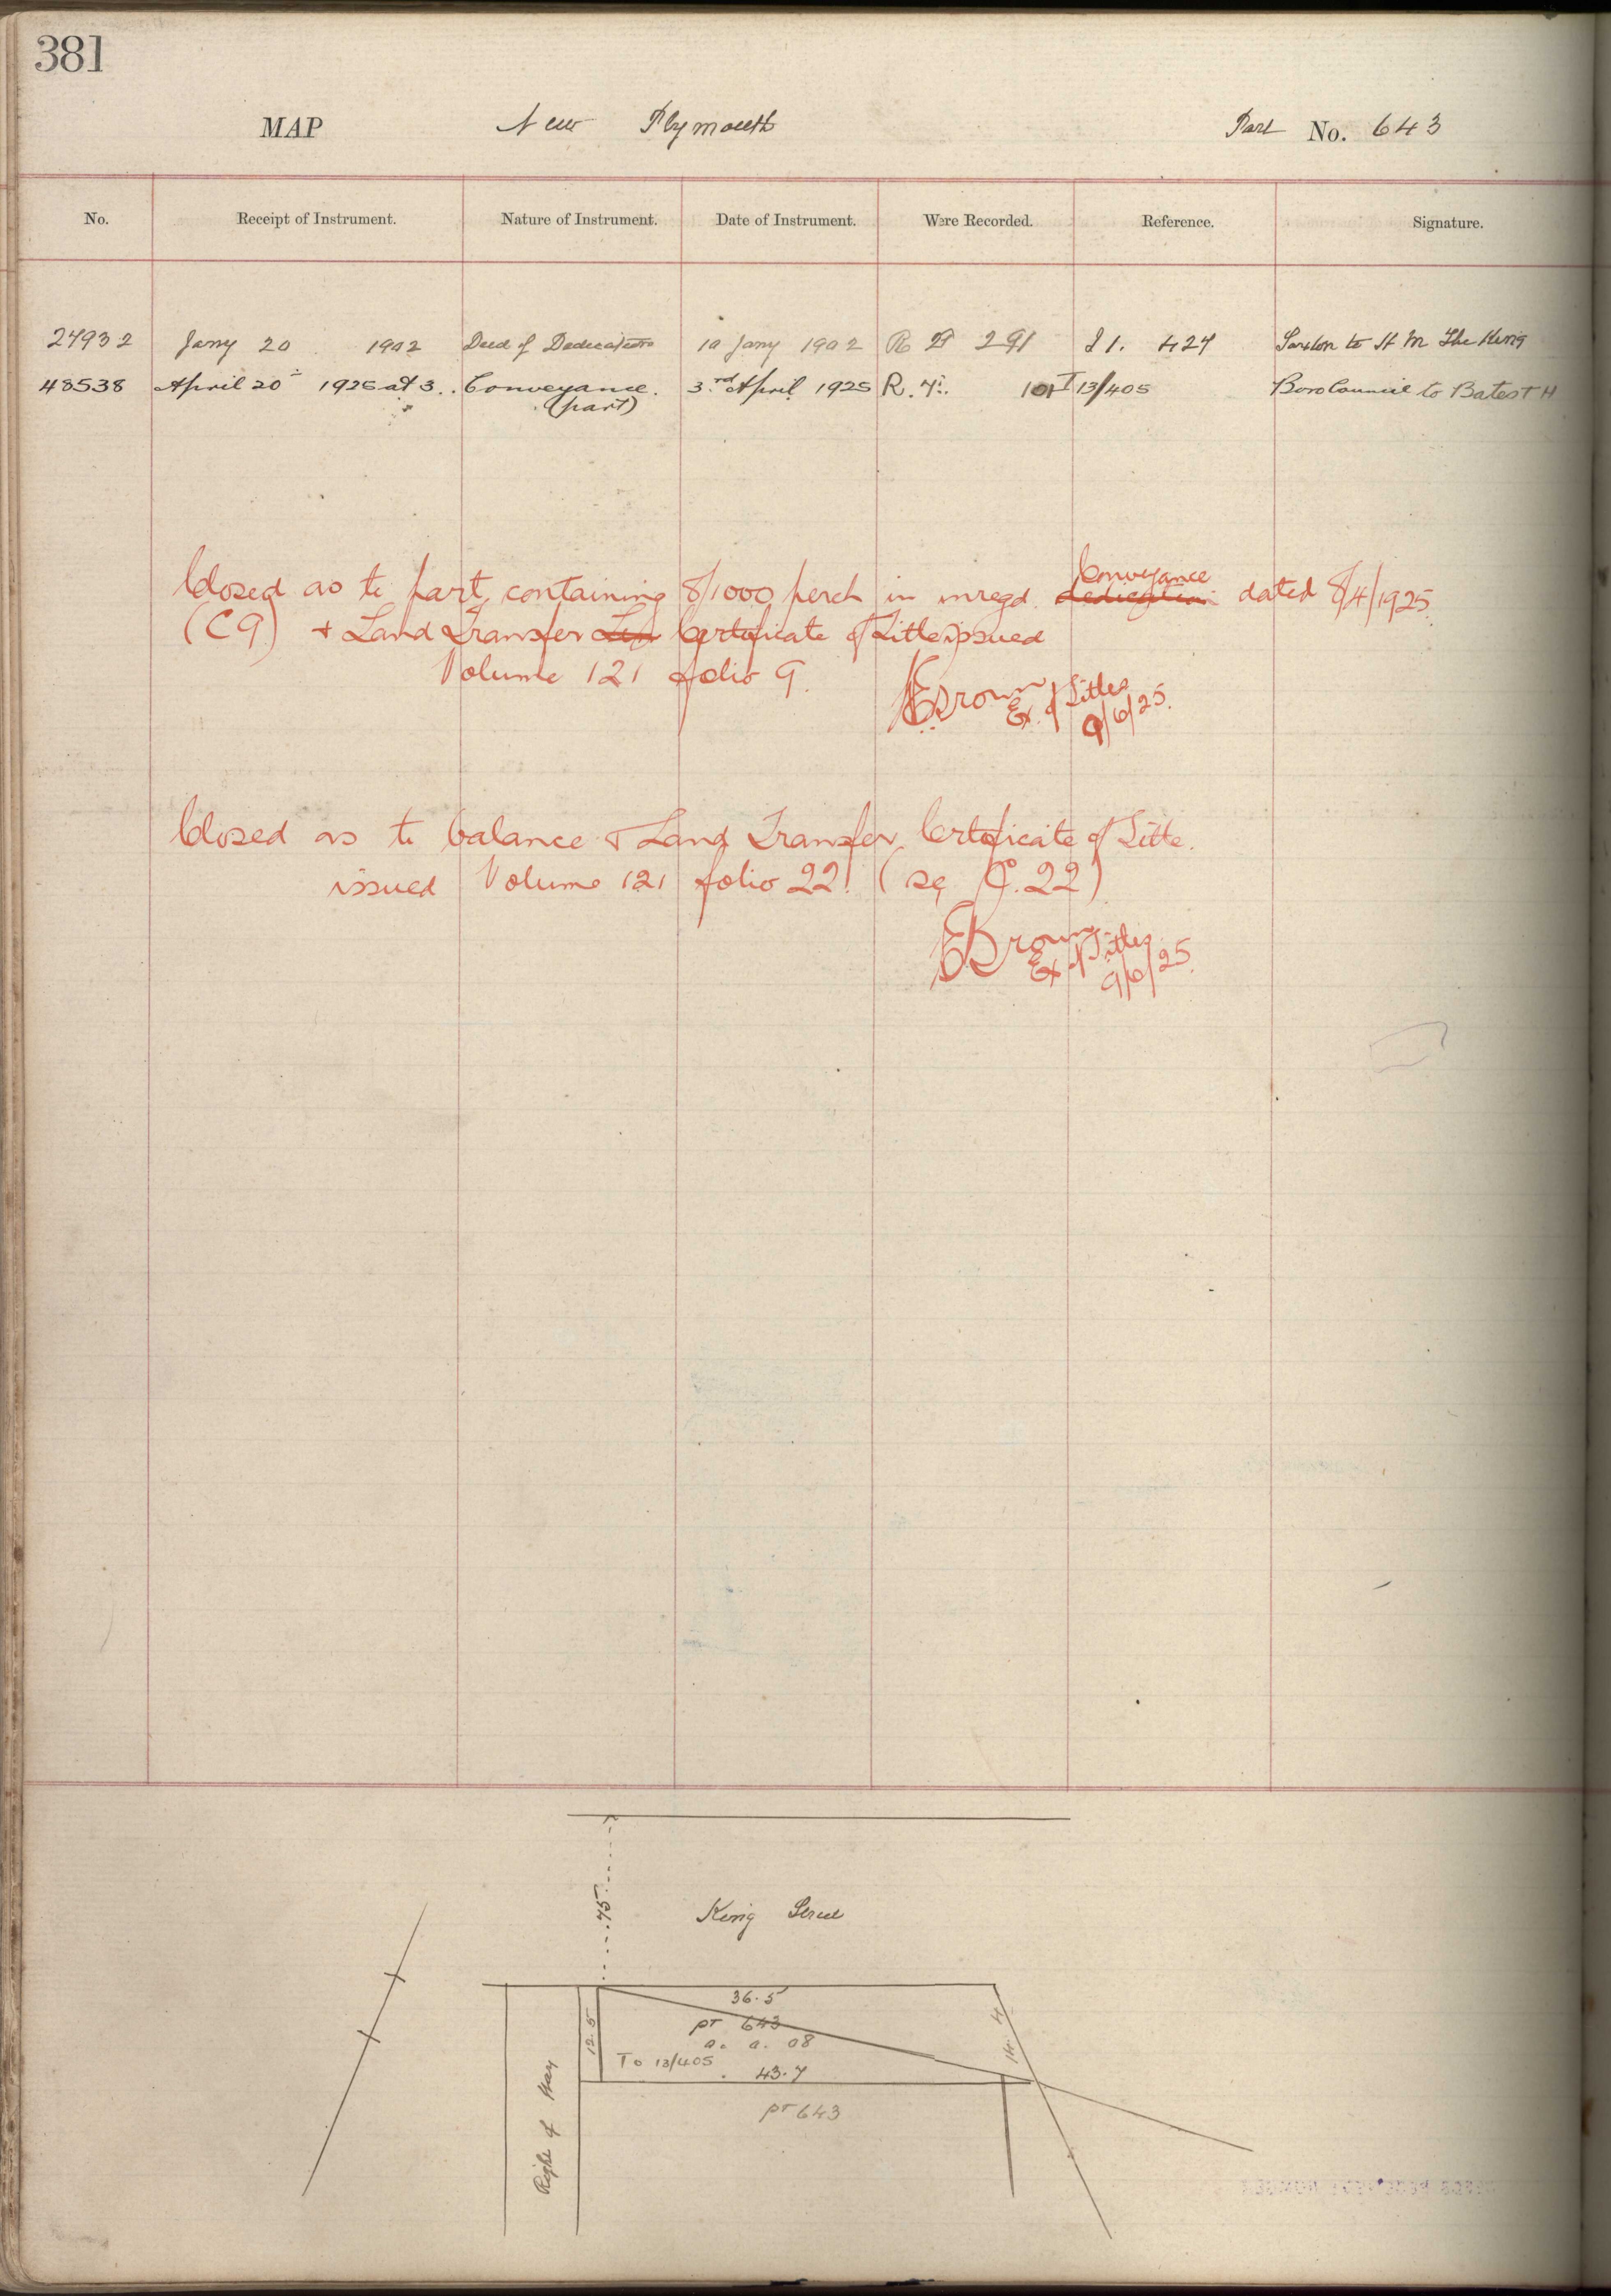 381
MAP New Plymouth Part No. 643
No. Receipt of Instrument. Nature of Instrument. Date of Instrument. Were Recorded. Reference. Signature.
24932 Jany 20 1902 Deed of Dedication 10 Jany 1902 R 291 I 1. 424 Saxton to H M The King
48538 April 20 1925 at 3. Conveyance. 3rd April 1925 R. 7. 101 I 13/405 Boro Council to Bates T H
(part)
Conveyance
Closed as to part containing 8/1000 perch in unregd. dedication dated 8/4/1925.
(C9) + Land Transfer Certificate of Title issued
Volume 121 folio 9.
Brown
Ex. of Titles
9/6/25.
Closed as to balance & Land Transfer Certificate of Title.
issued Volume 121 folio 22. (see C. 22)
Brown
Ex of Titles
9/6/25.
75
King Street
36.5
pt 643
12.5
0. 0. 08
14. 4
To 13/405
43.7
Right of Way
pt 643